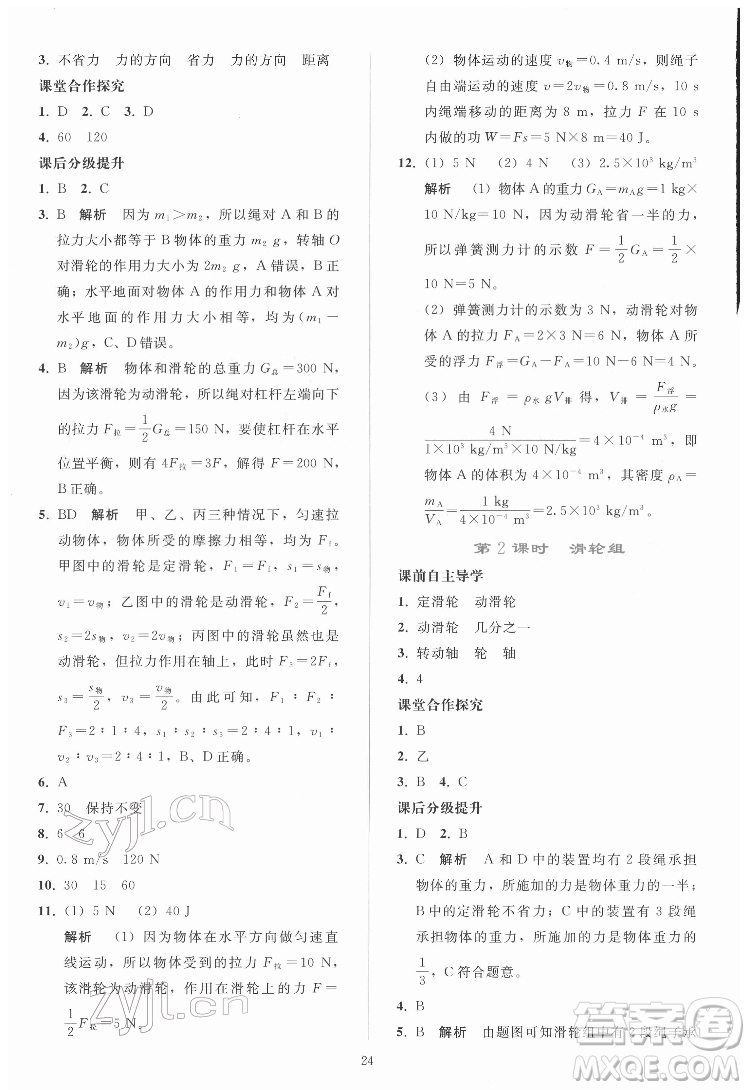 3. 不省力 力的方向 省力 力的方向 距离
课堂合作探究
1. D 2. C 3. D
4. 60 120
课后分级提升
1. B 2. C
3. B 解析 因为 m₁＞m₂，所以绳对 A 和 B 的
拉力大小都等于 B 物体的重力 m₂g，转轴 O
对滑轮的作用力大小为 2m₂g，A 错误，B 正
确；水平地面对物体 A 的支持力和物体 A 对
水平地面的作用力大小相等，均为(m₁－
m₂)g，C、D 错误。
4. B 解析 物体和滑轮的总重力 G总＝300 N，
因为该滑轮为动滑轮，所以绳对杠杆左端向下
的拉力 F拉＝1/2G总＝150 N，要使杠杆在水平
位置平衡，则有 4F拉＝3F，解得 F＝200 N。
B 正确。
5. BD 解析 甲、乙、丙三种情况下，匀速拉
动物体，物体所受的摩擦力相等，均为 Ff。
甲图中的滑轮是定滑轮，F₁＝Ff，s₁＝s物，
v₁＝v物；乙图中的滑轮是动滑轮，F₂＝Ff/2，
s₂＝2s物，v₂＝2v物；丙图中的滑轮虽然也是
动滑轮，但拉力作用在轴上，此时 F₃＝2Ff，
s₃＝s物/2，v₃＝v物/2。由此可知，F₁∶F₂∶
F₃＝2∶1∶4，s₁∶s₂∶s₃＝2∶4∶1，v₁∶
v₂∶v₃＝2∶4∶1，B、D 正确。
6. A
7. 30 保持不变
8. 6 6
9. 0.8 m/s 120 N
10. 30 15 60
11. (1) 5 N (2) 40 J
解析 (1) 因为物体在水平方向做匀速直
线运动，所以物体受到的拉力 F拉＝10 N，因
该滑轮为动滑轮，作用在绳子末端的力 F＝
1/2F拉＝5 N。
(2) 物体运动的速度 v物＝0.4 m/s，则绳子
自由端运动的速度 v＝2v物＝0.8 m/s，10 s
内绳端移动的距离为 8 m，拉力 F 在 10 s
内做的功 W＝Fs＝5 N×8 m＝40 J。
12. (1) 5 N (2) 4 N (3) 2.5×10³ kg/m³
解析 (1) 物体 A 的重力 G_A＝m_A g＝1 kg×
10 N/kg＝10 N，因为动滑轮省一半的力，
所以弹簧测力计的示数 F＝1/2G_A＝1/2×
10 N＝5 N。
(2) 弹簧测力计的示数为 3 N，动滑轮对物
体 A 的拉力 F_A＝2×3 N＝6 N，则物体 A 所
受的浮力 F浮＝G_A－F_A＝10 N－6 N＝4 N。
(3) 由 F浮＝ρ水gV排 得，V排＝F浮/ρ水g＝
4 N/(1×10³ kg/m³×10 N/kg)＝4×10⁻⁴ m³，即
物体 A 的体积为 4×10⁻⁴ m³，其密度 ρ_A＝
m_A/V_A＝1 kg/(4×10⁻⁴ m³)＝2.5×10³ kg/m³。
第 2 课时 滑轮组
课前自主导学
1. 定滑轮 动滑轮
2. 动滑轮 几分之一
3. 转动轴 轮 轴
4. 4
课堂合作探究
1. B
2. 乙
3. B 4. C
课后分级提升
1. D 2. B
3. C 解析 A 和 D 中的装置均有 2 段绳承担
物体的重力，所施加的力是物体重力的一半；
B 中的定滑轮不省力；C 中的装置有 3 段绳
承担物体的重力，所施加的力为物体重力的
1/3，C 符合题意。
4. B
5. B 解析 由题图可知滑轮组中有 2 段绳子承
24
zyjl.cn
zyjl.cn
答案圈
MXQE.COM